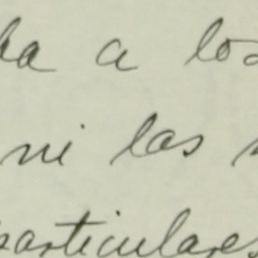 a los
ni las
particulares